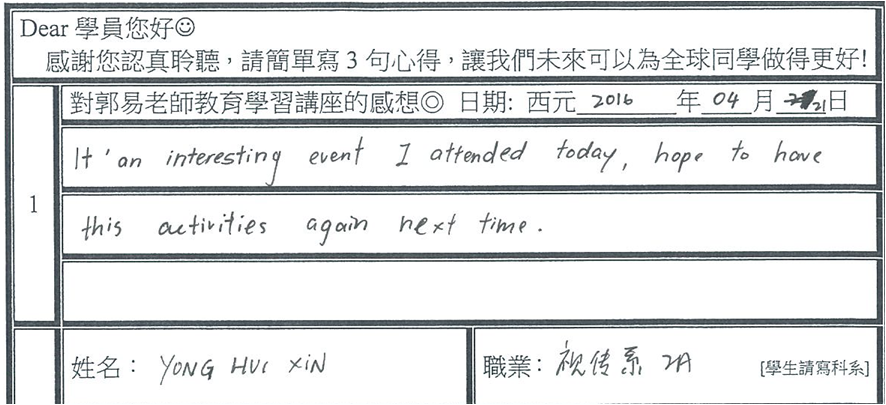 Dear 學員您好☺
感謝您認真聆聽，請簡單寫 3 句心得，讓我們未來可以為全球同學做得更好!
對郭易老師教育學習講座的感想◎ 日期: 西元 2016 年 04 月 21 日
1
It 'an interesting event I attended today, hope to have
this activities again next time.
姓名： YONG HUI XIN
職業： 视传系 2A [學生請寫科系]